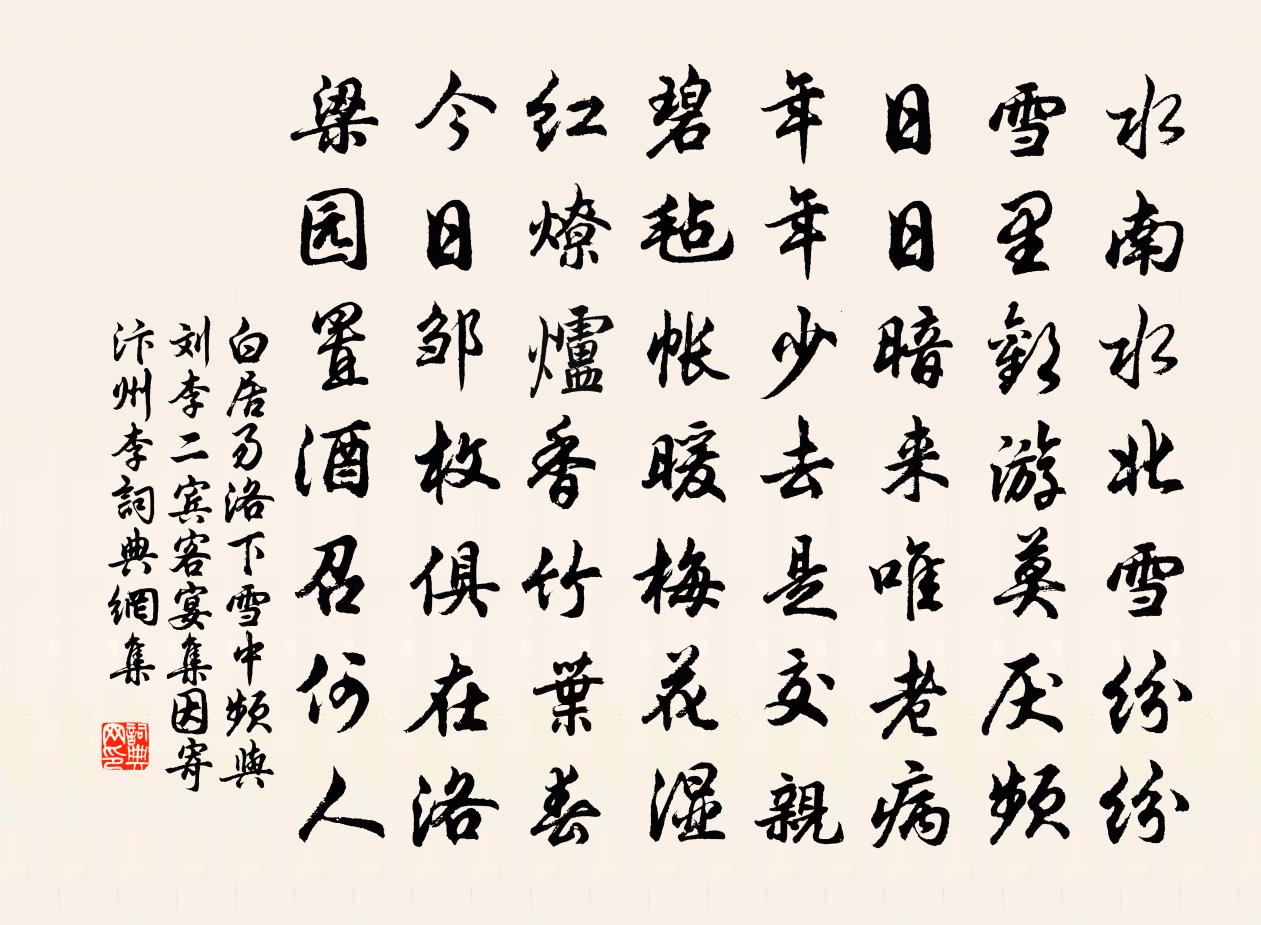 水南水北雪纷纷
雪里歡游莫厌频
日日暗来唯老病
年年少去是交親
碧毡帐暖梅花湿
红燎爐香竹葉春
今日邹枚俱在洛
梁园置酒召何人
白居易洛下雪中频與
刘李二宾客宴集因寄
汴州李詞典網集
詞典网印